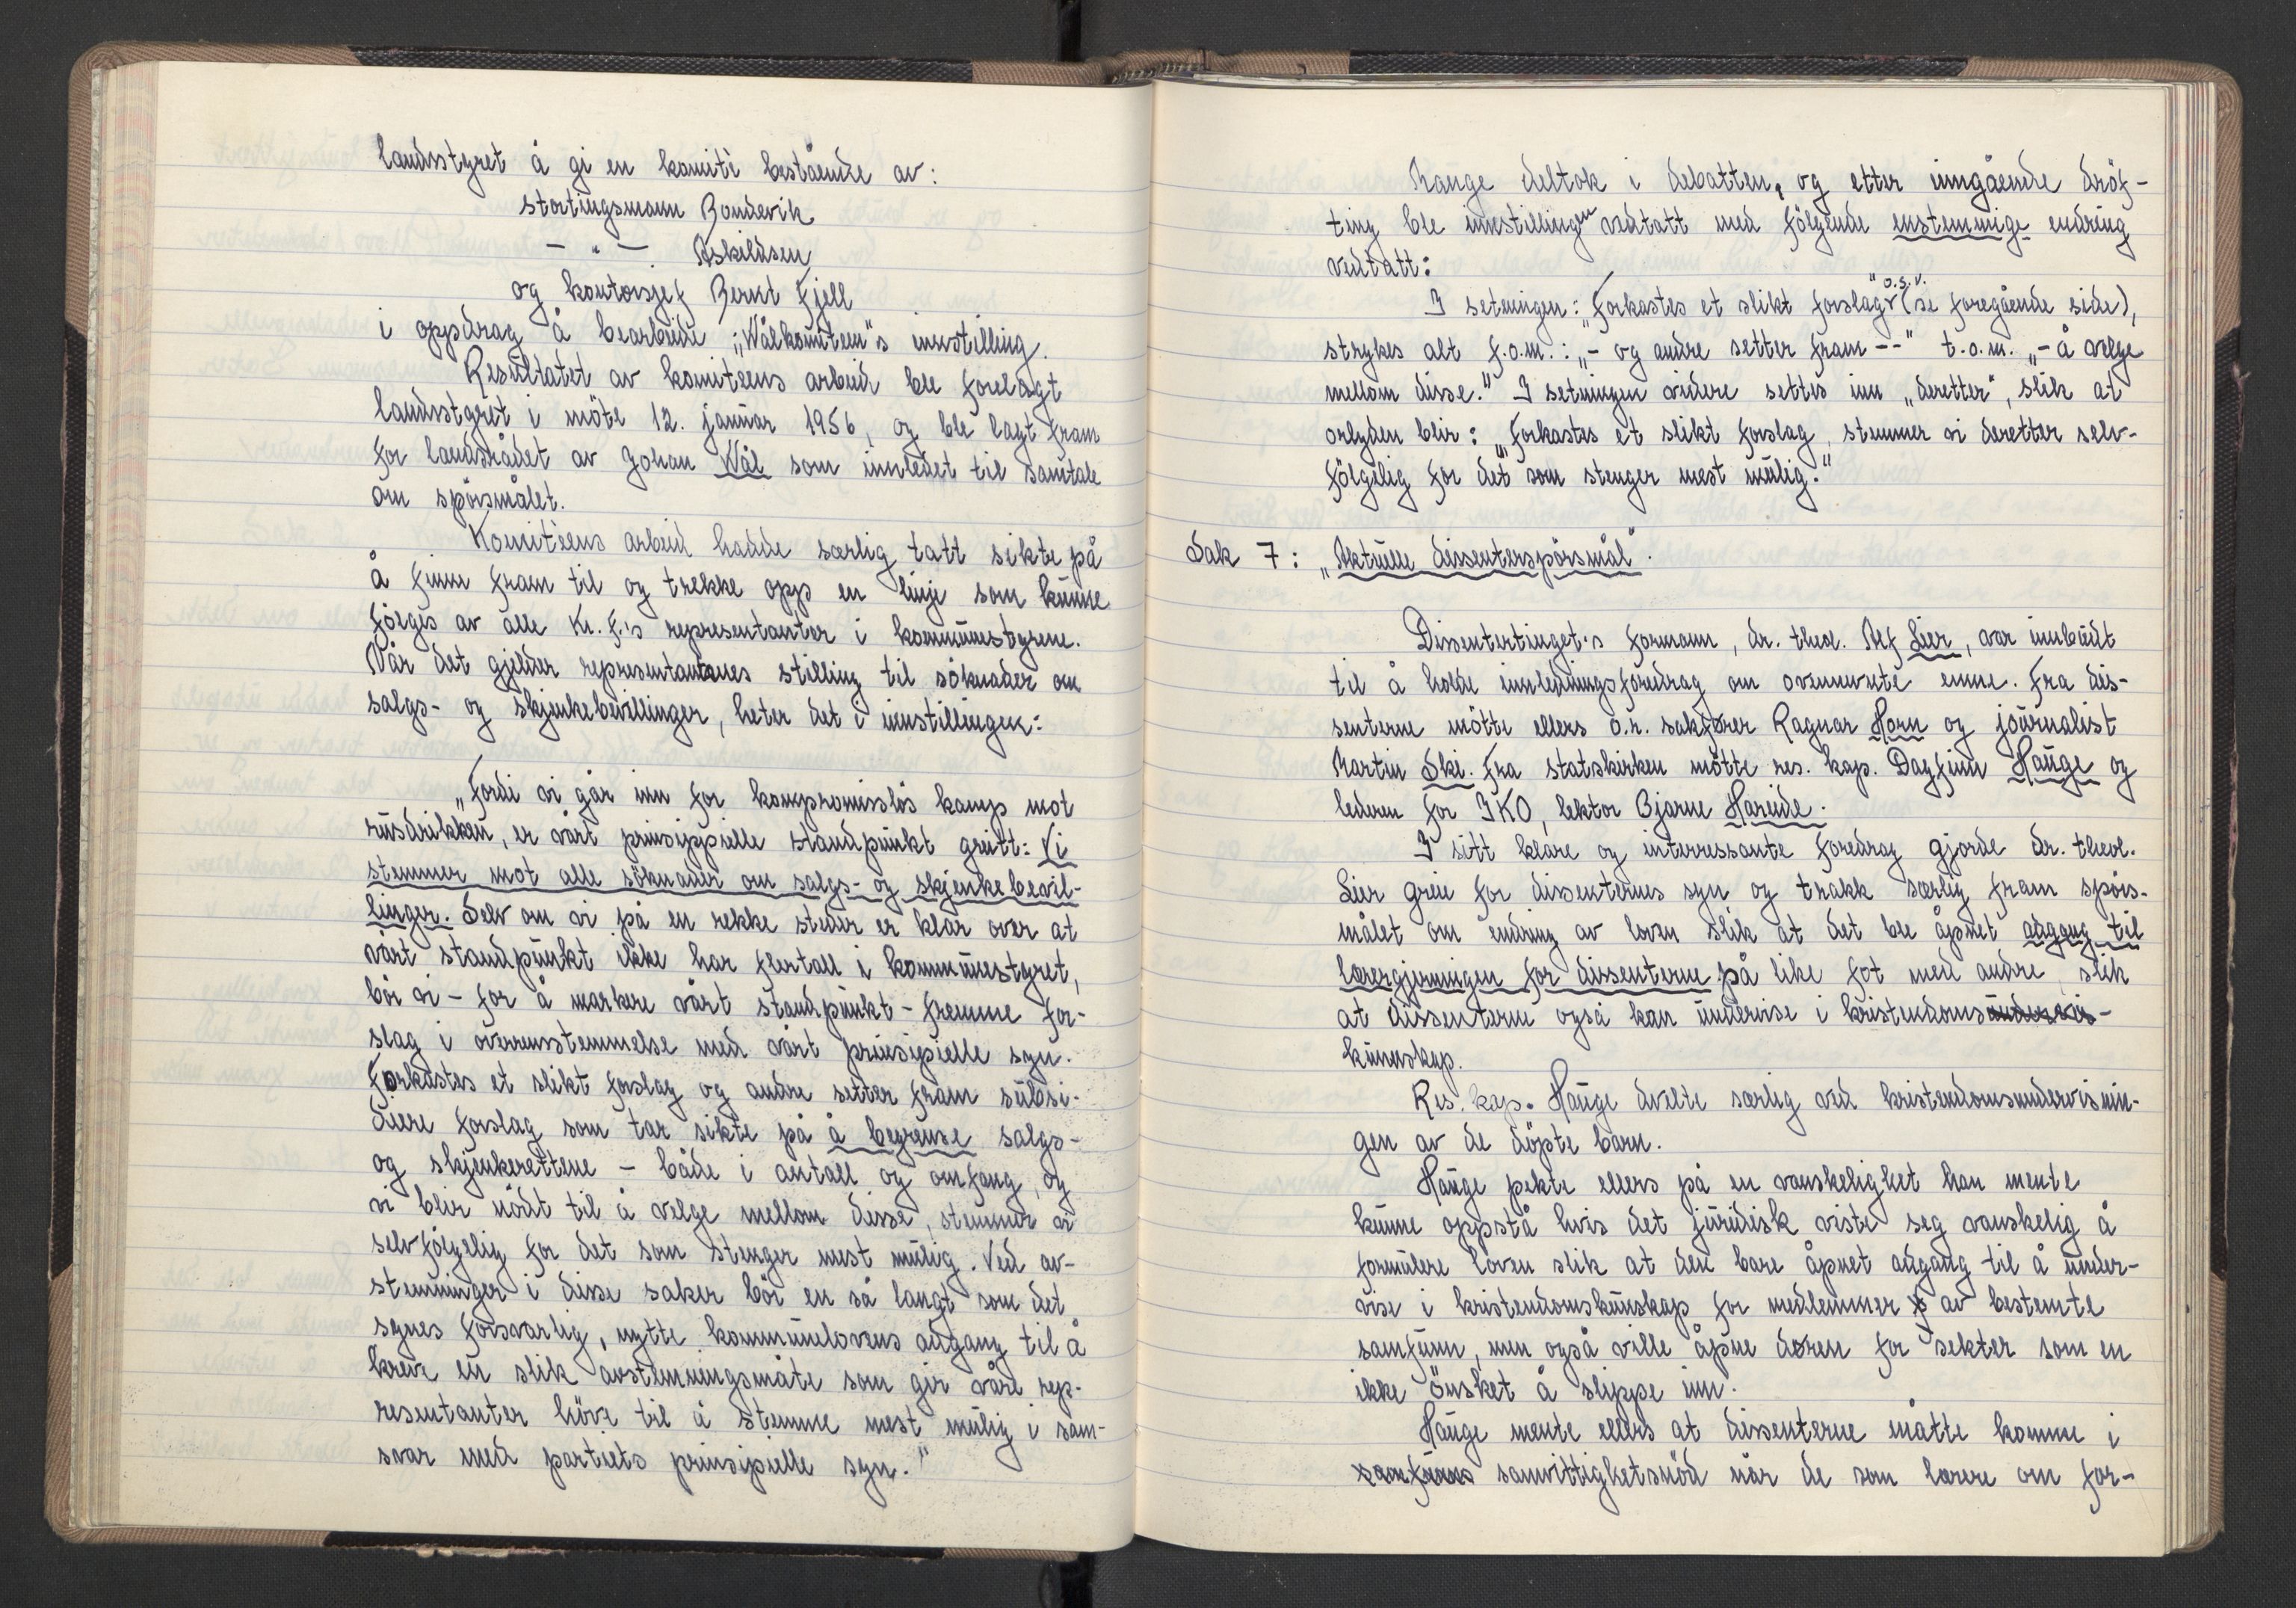 landsstyret å gi en komité bestående av:
stortingsmann Bondevik
— " — Askildsen
og kontorsjef Bernt Fjell
i oppdrag å bearbeide „Wålkomiteen"s innstilling.
Resultatet av komitéens arbeid ble forelagt
landsstyret i möte 12. januar 1956, og ble lagt fram
for landsrådet av Johan Wål som innledet til samtale
om spörsmålet.
Komitéens arbeid hadde særlig tatt sikte på
å finne fram til og trekke opp en linje som kunne
fölges av alle Kr. F.'s representanter i kommunestyrene.
Når det gjelder representantenes stilling til söknader om
salgs- og skjenkebevillinger, heter det i innstillingen:
„Fordi vi går inn for kompromisslös kamp mot
rusdrikken, er vårt prinsippielle standpunkt greitt: Vi
stemmer mot alle söknader om salgs- og skjenkebevil-
linger. Selv om vi på en rekke steder er klar over at
vårt standpunkt ikke har flertall i kommunestyret,
bör vi - for å markere vårt standpunkt - fremme for-
slag i overensstemmelse med vårt prinsipielle syn.
Forkastes et slikt forslag og andre setter fram subsi-
diere forslag som tar sikte på å begrense salgs-
og skjenkerettene - både i antall og omfang, og
vi blir nödt til å velge mellom disse, stemmer vi
selvfölgelig for det som stenger mest mulig. Ved av-
stemninger i disse saker bör en så langt som det
synes forsvarlig, nytte kommunelovens adgang til å
kreve en slik avstemningsmåte som gir våre rep-
resentanter höve til å stemme mest mulig i sam-
svar med partiets prinsipielle syn."
Mange deltok i debatten, og etter inngående dröf-
ting ble innstillingen vedtatt med fölgende enstemmige endring
vedtatt:
I setningen: „Forkastes et slikt forslag" o.s.v. (se foregående side),
strykes alt f.o.m.: „- og andre setter fram --" t.o.m. „- å velge
mellom disse." I setningen videre settes inn „deretter", slik at
orlyden blir: „Forkastes et slikt forslag, stemmer vi deretter selv-
fölgelig for det som stenger mest mulig."
Sak 7: „Aktuelle dissenterspörsmål".
Dissentertinget's formann, dr. theol. Alf Lier, var innbudt
til å holde innledningsforedrag om ovennevnte emne. Fra dis-
senterne mötte ellers o.r. sakförer Ragnar Horn og journalist
Martin Ski. Fra statskirken mötte res. kap. Dagfinn Hauge og
lederen for IKO, lektor Bjarne Hareide.
I sitt klare og interressante foredrag gjorde dr. theol.
Lier greie for dissenternes syn og trakk særlig fram spörs-
målet om endring av loven slik at det ble åpnet adgang til
lærergjerningen for dissenterne på like fot med andre, slik
at dissenterne også kan undervise i kristendomsundervis-
kunnskap.
Res. kap. Hauge dvelte særlig ved kristendomsundervisnin-
gen av de döpte barn.
Hauge pekte ellers på en vanskelighet han mente
kunne oppstå hvis det juridisk viste seg vanskelig å
formulere loven slik at den bare åpnet adgang til å under-
vise i kristendomskunskap for medlemmer av bestemte
samfunn, men også ville åpne dören for sekter som en
ikke önsket å slippe inn.
Hauge mente ellers at dissenterne måtte komme i
samfunns samvittighetsnöd når de som lærere om for-